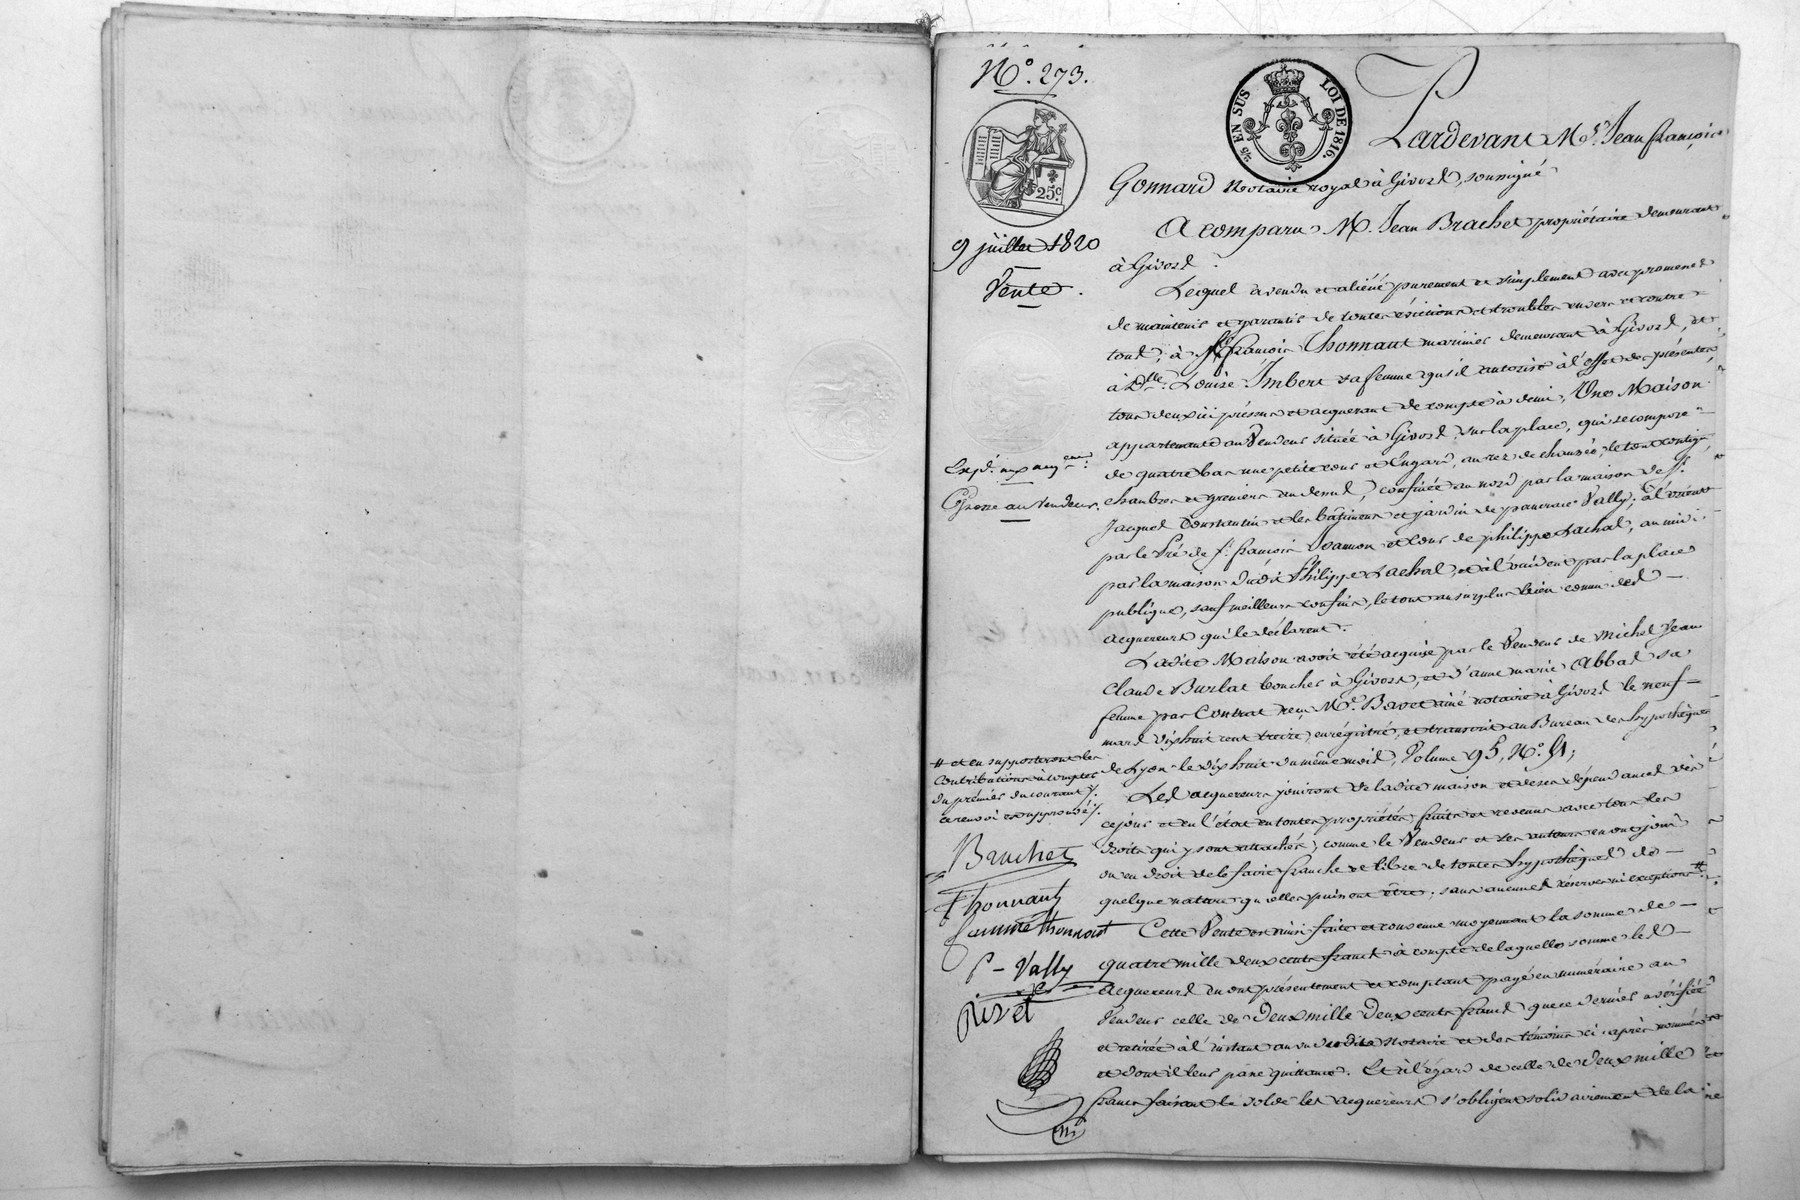 N.° 273.
25 EN SUS
LOI DE 1816.
25 c.
9 juillet 1820
Vente.
Pardevant M.e Jean françois
Gonnard Notaire royal à Givord, soussigné
A comparu M. Jean Brachet propriétaire demeurant
à Givord.
Lequel a vendu et aliéné purement et simplement avec promesse
de maintenir et garantir de toutes évictions et troubles envers et contre
tous, à françois Thonnant marinier demeurant à Givord, et
à D.lle Louise Imbert sa femme qu'il autorise à l'effet des présentes
tous deux ici présens et acquerant de compte à demi, Une Maison
appartenante au Vendeur située à Givord sur la place, qui se compose
de quatre bas une petite cour et hngard, au rez de chaussée, le tout contigu,
chambres et greniers au dessus, confinée au nord par la maison de S.r
Jacques Constantin et les bâtimens et jardin de pancrace Vally; à l'orient
par le Pré de S.r françois et cour de philippe Lachal, au midi
par la maison dudit Philippe Lachal, et à l'occident par la place
publique, sauf meilleurs confins, le tout au surplus bien connu desd.
acquereurs qui le déclarent.
Ladite Maison avoit été acquise par le Vendeur de Michel Jean
Claude Burlat boucher à Givord, et d'anne marie Abbal sa
femme par Contrat reçu M.e Bavet ainé notaire à Givord le neuf
mars dixhuit cent treize, enrégistré, et transcrit au Bureau des hypothèques
de Lyon le dix huit du même mois, Volume 95, N.° 51;
Lesd. acquereurs jouiront de ladite maison et de ses dépendances dès
ce jour et en l'état en toutes propriétés, fruits et revenus avec tous les
droits qui y sont attachés, comme le Vendeur et ses auteurs en ont joui
ou eu droit de le faire franche et libre de toutes hypothèques de
quelque nature qu'elles puissent être; sans aucunes réserves ni exceptions #
Cette Vente est ainsi faite et convenue moyennant la somme de
quatre mille deux cents francs à compte de laquelle somme lesd.
acquereurs en ont présentement et comptant payé en numéraire au
Vendeur celle de Deux mille Deux cents francs que ce dernier a vérifiée
et retirée à l'instant au vu dudit Notaire et des témoins ci-après nommés
et dont il leur passe quittance. Et à l'égard de celle de deux mille
francs faisant le solde les acquereurs s'obligent solidairement de la
Exp.n aux acq.eurs
Grosse au Vendeur.
# et en supporteront les
Contributions à compter
du premier du courant /.
ce renvoi est approuvé /.
Brachet
Thonnant
femme thonnant
P - Vally
Rivet